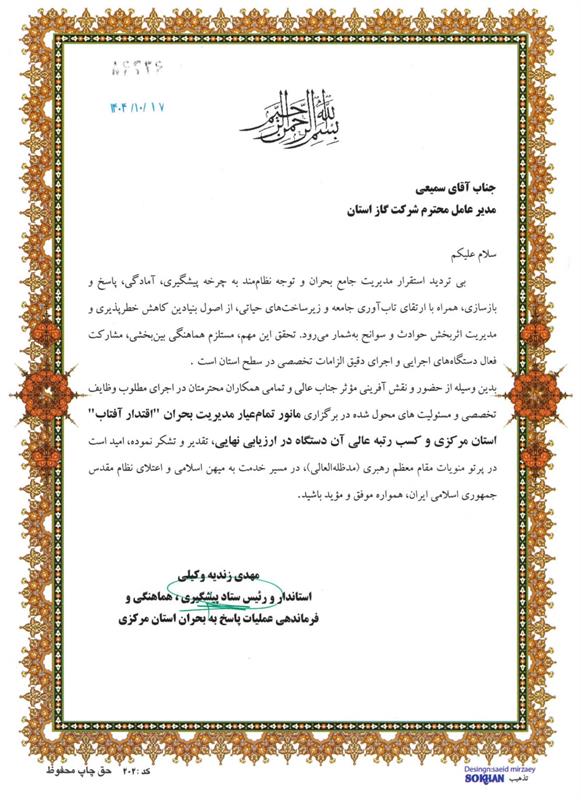 ۸۶۹۳۶
۱۴۰۴/۱۰/۱۷
بسم الله الرحمن الرحیم
جناب آقای سمیعی
مدیر عامل محترم شرکت گاز استان
سلام علیکم
بی تردید استقرار مدیریت جامع بحران و توجه نظام‌مند به چرخه پیشگیری، آمادگی، پاسخ و
بازسازی، همراه با ارتقای تاب‌آوری جامعه و زیرساخت‌های حیاتی، از اصول بنیادین کاهش خطرپذیری و
مدیریت اثربخش حوادث و سوانح به‌شمار می‌رود. تحقق این مهم، مستلزم هماهنگی بین‌بخشی، مشارکت
فعال دستگاه‌های اجرایی و اجرای دقیق الزامات تخصصی در سطح استان است .
بدین وسیله از حضور و نقش آفرینی مؤثر جناب عالی و تمامی همکاران محترمتان در اجرای مطلوب وظایف
تخصصی و مسئولیت های محول شده در برگزاری مانور تمام‌عیار مدیریت بحران "اقتدار آفتاب"
استان مرکزی و کسب رتبه عالی آن دستگاه در ارزیابی نهایی، تقدیر و تشکر نموده، امید است
در پرتو منویات مقام معظم رهبری (مدظله‌العالی)، در مسیر خدمت به میهن اسلامی و اعتلای نظام مقدس
جمهوری اسلامی ایران، همواره موفق و مؤید باشید.
مهدی زندیه وکیلی
استاندار و رئیس ستاد پیشگیری، هماهنگی و
فرماندهی عملیات پاسخ به بحران استان مرکزی
کد :۲۰۲ حق چاپ محفوظ
Desingn:saeid mirzaey
SOKHAN تذهیب